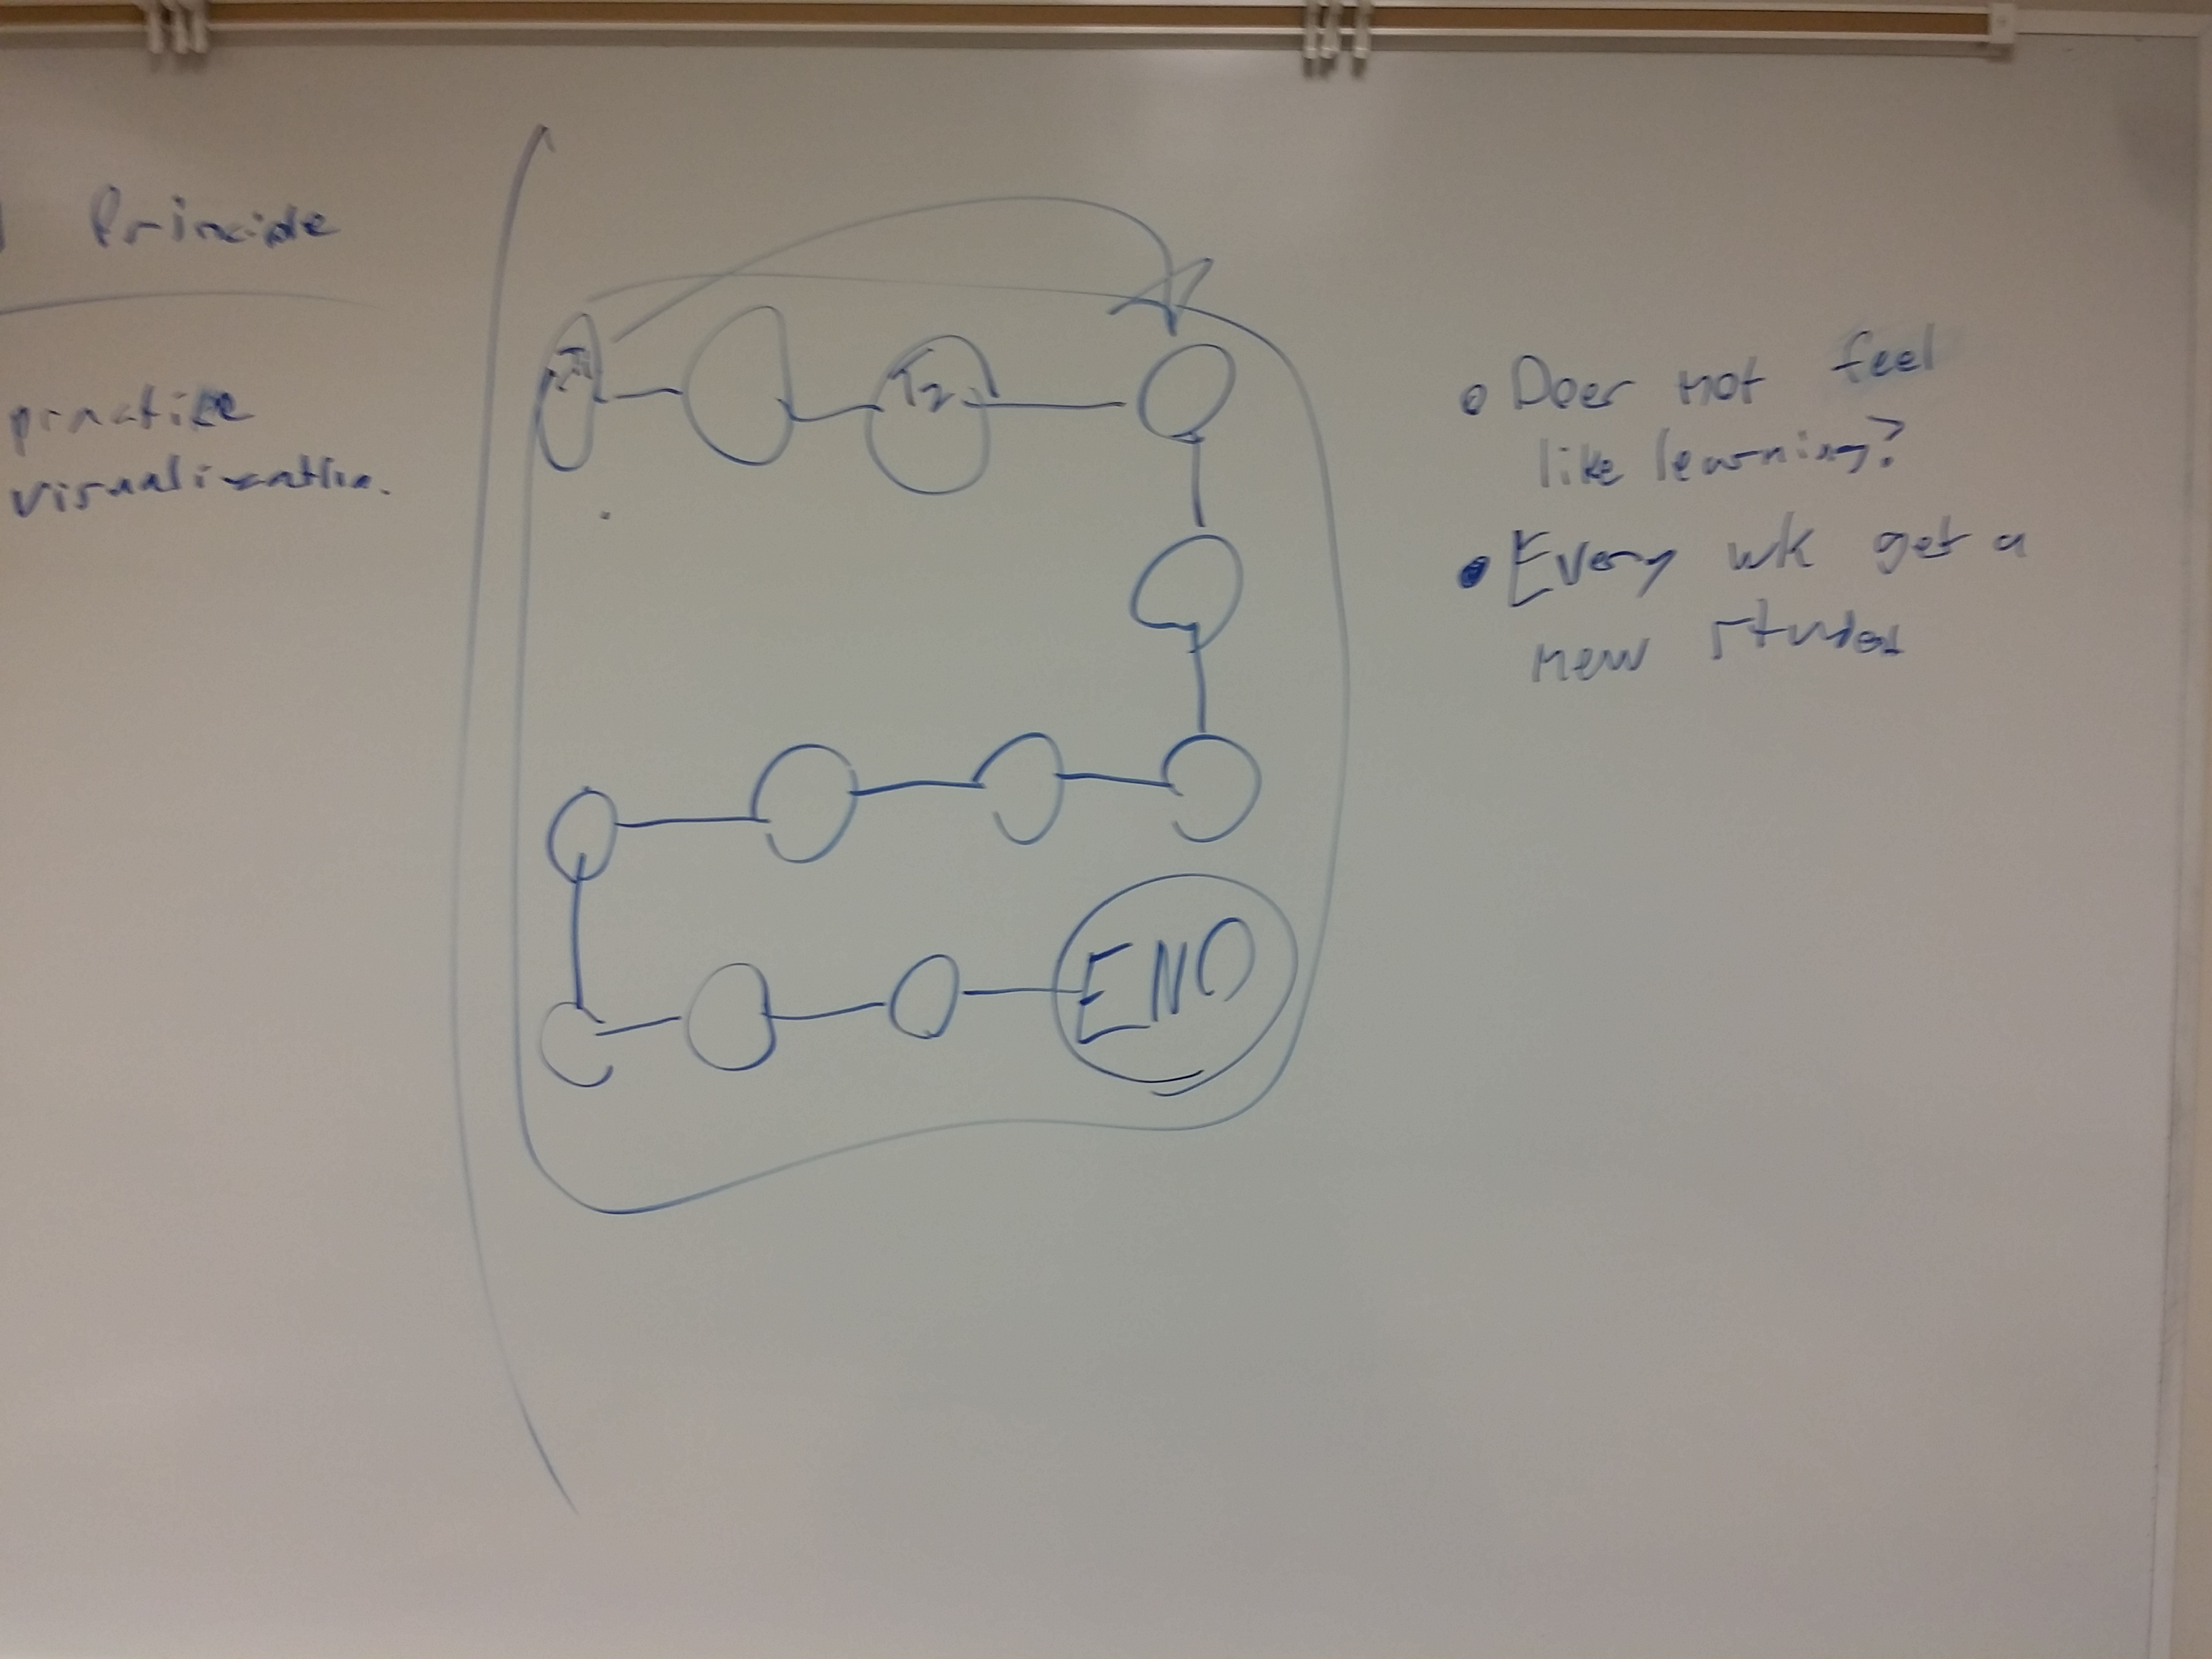 Principle
practice
visualization.
T1
T2
END
• Does not feel
like learning?
• Every wk get a
new student